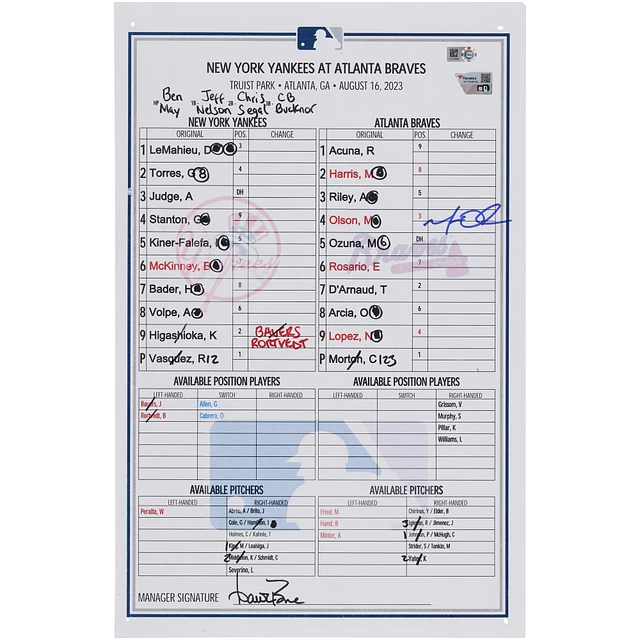 NEW YORK YANKEES AT ATLANTA BRAVES
TRUIST PARK • ATLANTA, GA • AUGUST 16, 2023
Ben Jeff Chris CB
HP May 1B Nelson 2B Segal 3B Bucknor
NEW YORK YANKEES
ORIGINAL POS. CHANGE
1 LeMahieu, D 3
2 Torres, G 8 4
3 Judge, A DH
4 Stanton, G 9
5 Kiner-Falefa, I
6 McKinney, B
7 Bader, H 8
8 Volpe, A 6
9 Higashioka, K 2 BAUERS
RORTVEDT
P Vasquez, R 12 1
ATLANTA BRAVES
ORIGINAL POS. CHANGE
1 Acuna, R 9
2 Harris, M 8
3 Riley, A 5
4 Olson, M 3
5 Ozuna, M 6 DH
6 Rosario, E 7
7 D'Arnaud, T 2
8 Arcia, O 6
9 Lopez, N 4
P Morton, C 123 1
AVAILABLE POSITION PLAYERS
LEFT-HANDED SWITCH RIGHT-HANDED
Bauers, J Allen, G
Rortvedt, B Cabrera, O
AVAILABLE POSITION PLAYERS
LEFT-HANDED SWITCH RIGHT-HANDED
Grissom, V
Murphy, S
Pillar, K
Williams, L
AVAILABLE PITCHERS
LEFT-HANDED RIGHT-HANDED
Peralta, W Abreu, A / Brito, J
Cole, G / Hamilton, I
Holmes, C / Kahnle, T
King, M / Loaisiga, J
Middleton, K / Schmidt, C
Severino, L
AVAILABLE PITCHERS
LEFT-HANDED RIGHT-HANDED
Fried, M Chirinos, Y / Elder, B
Hand, B 3 Iglesias, R / Jimenez, J
Minter, A 1 Johnson, P / McHugh, C
Strider, S / Tonkin, M
2 Yates, K
MANAGER SIGNATURE